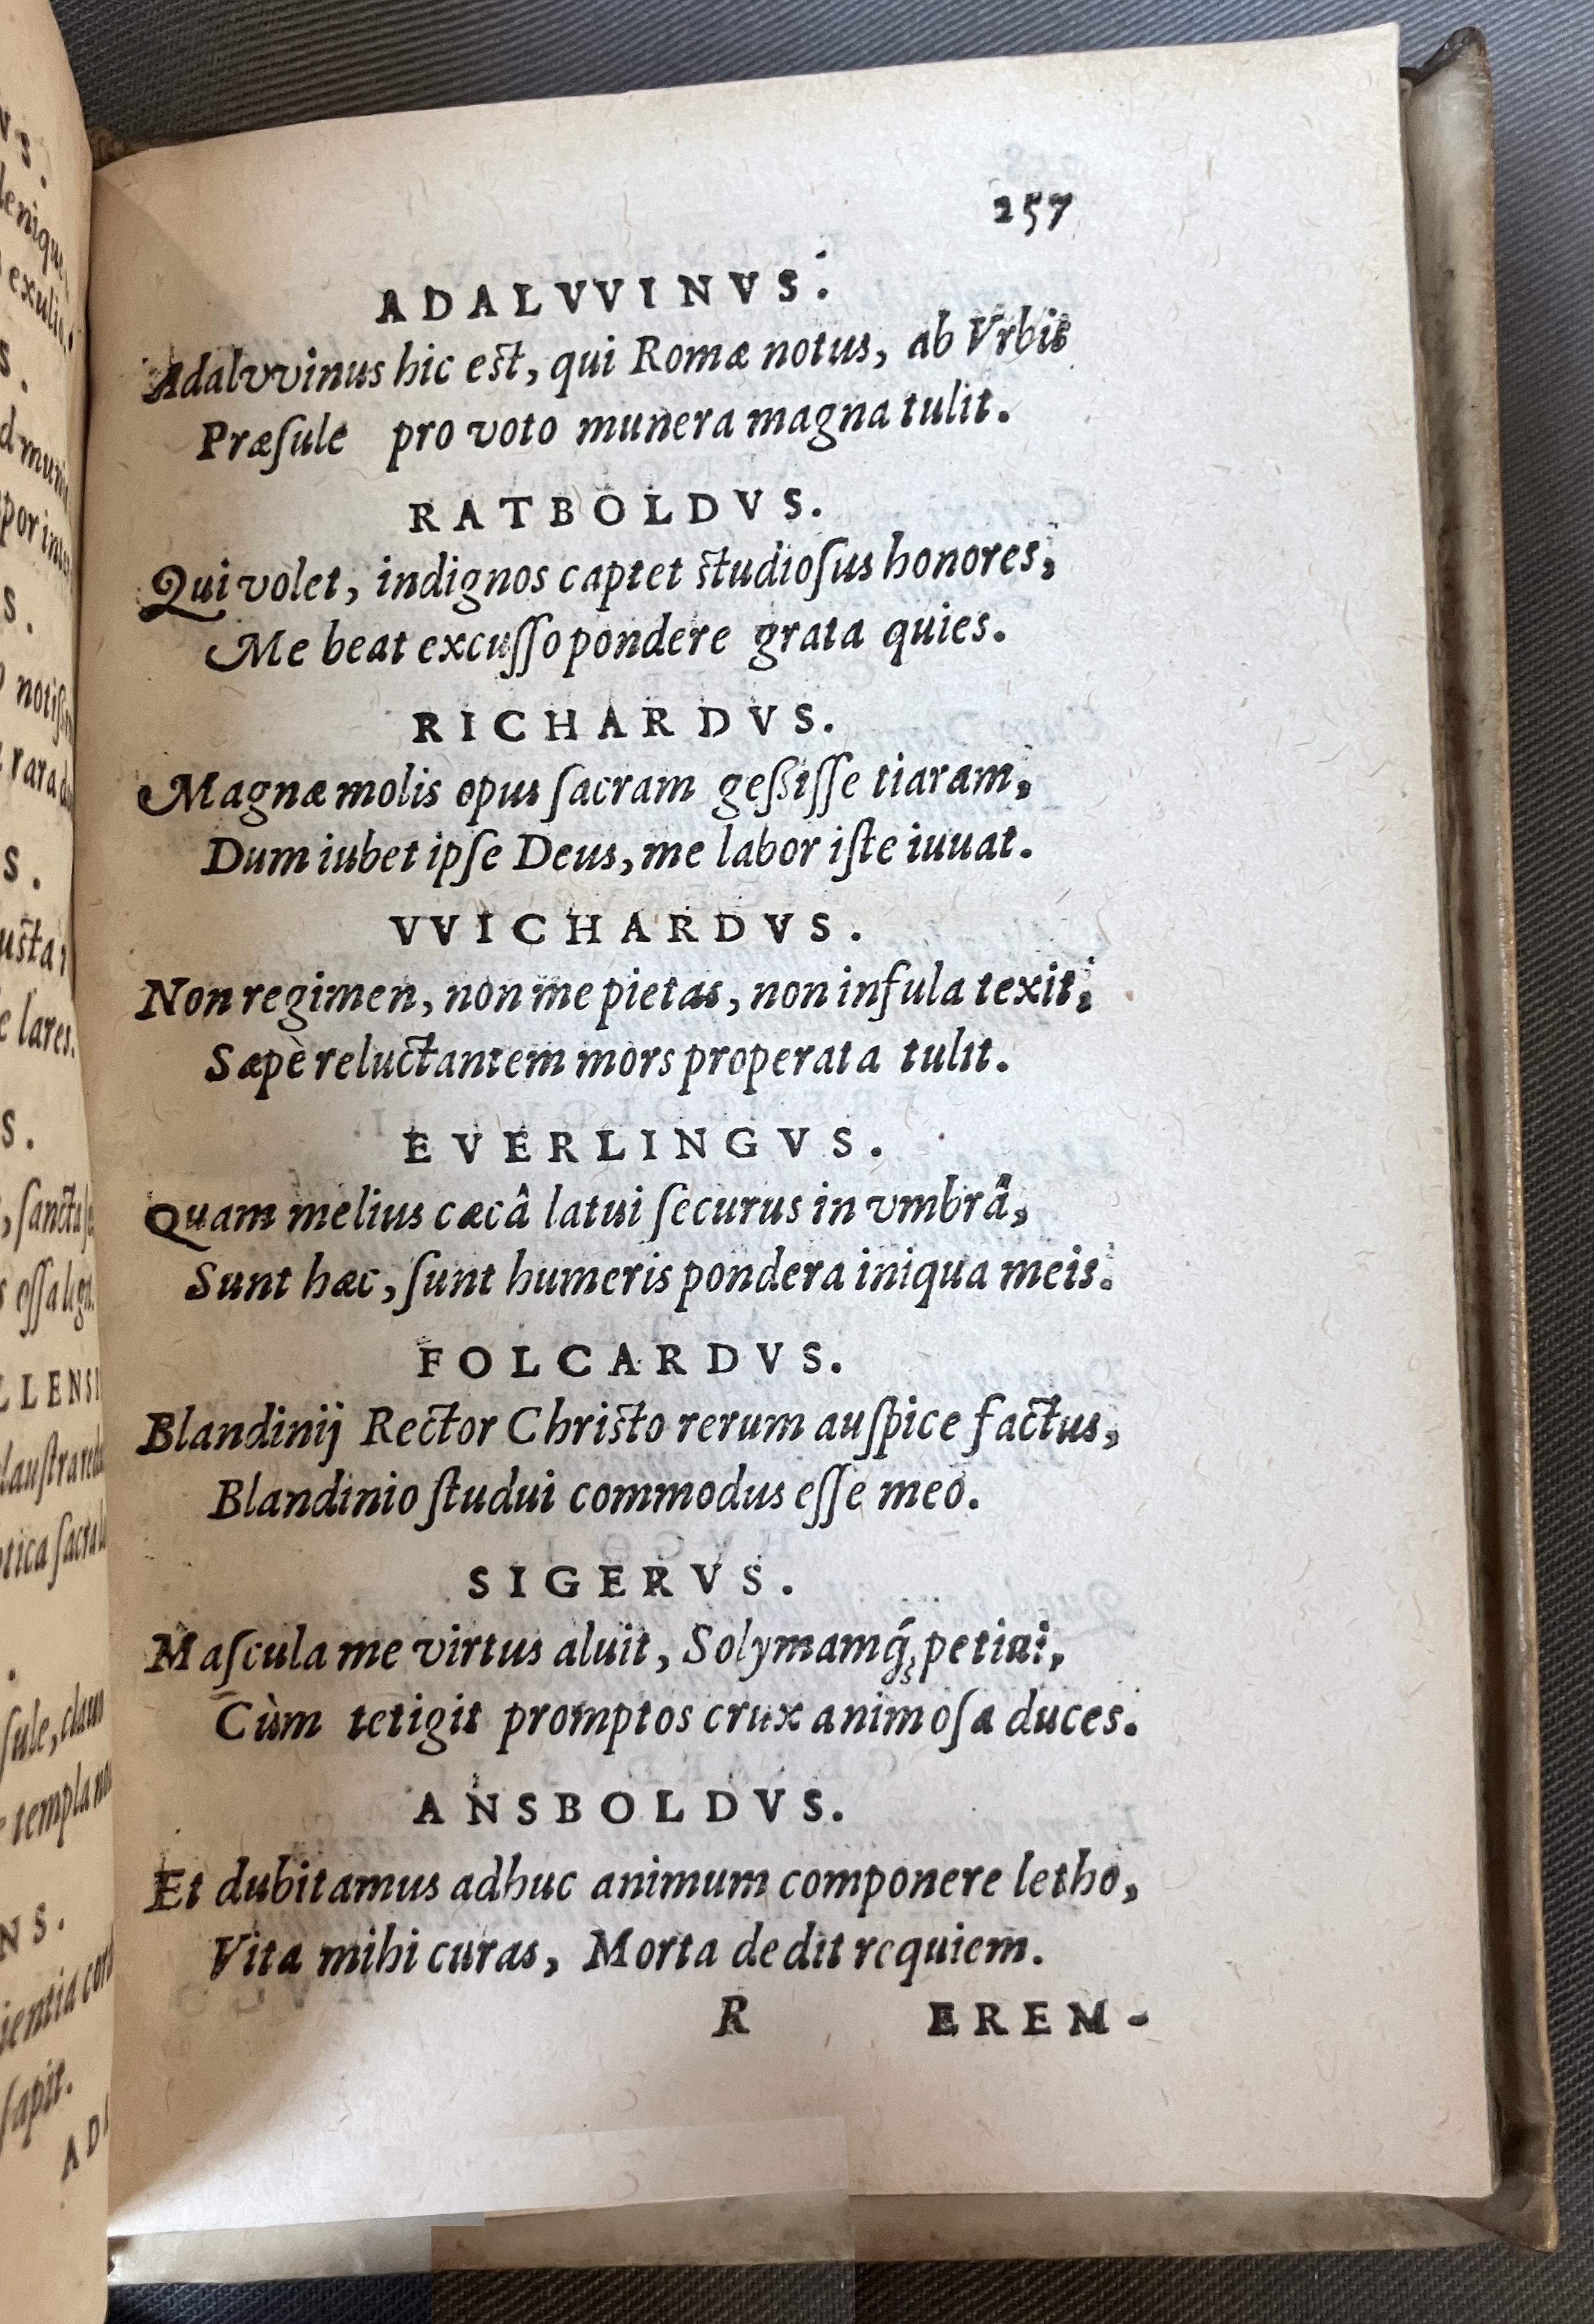 257
ADALVVINVS.
Adalvvinus hic est, qui Romæ notus, ab Vrbis
Præſule pro voto munera magna tulit.
RATBOLDVS.
Qui volet, indignos captet studioſus honores,
Me beat excuſſo pondere grata quies.
RICHARDVS.
Magnæ molis opus ſacram geſsiſſe tiaram,
Dum iubet ipſe Deus, me labor iſte iuuat.
VVICHARDVS.
Non regimen, non me pietas, non infula texit,
Sæpè reluctantem mors properata tulit.
EVERLINGVS.
Quam melius cæcâ latui ſecurus in vmbrâ,
Sunt hæc, ſunt humeris pondera iniqua meis.
FOLCARDVS.
Blandinij Rector Christo rerum auſpice factus,
Blandinio ſtudui commodus eſſe meo.
SIGERVS.
Maſcula me virtus aluit, Solymamq́; petiui,
Cùm tetigit promptos crux animoſa duces.
ANSBOLDVS.
Et dubitamus adhuc animum componere letho,
Vita mihi curas, Morta dedit requiem.
R EREM-